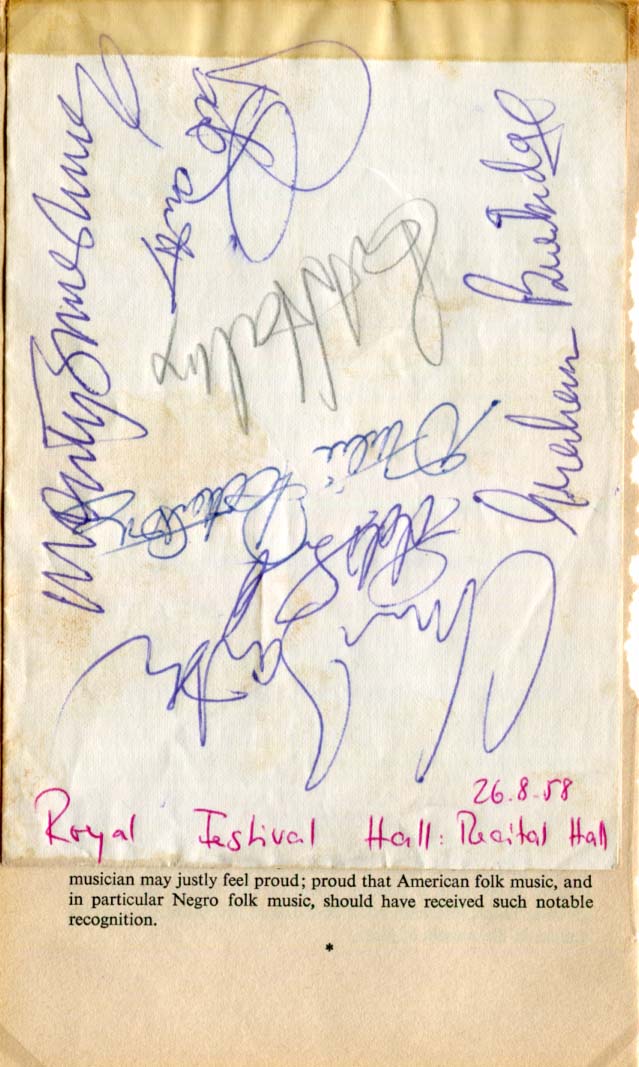 Monty Sunshine
Pat Halcox
Graham Burbidge
Chris Barber
26.8.58
Royal Festival Hall: Recital Hall
musician may justly feel proud; proud that American folk music, and
in particular Negro folk music, should have received such notable
recognition.
*